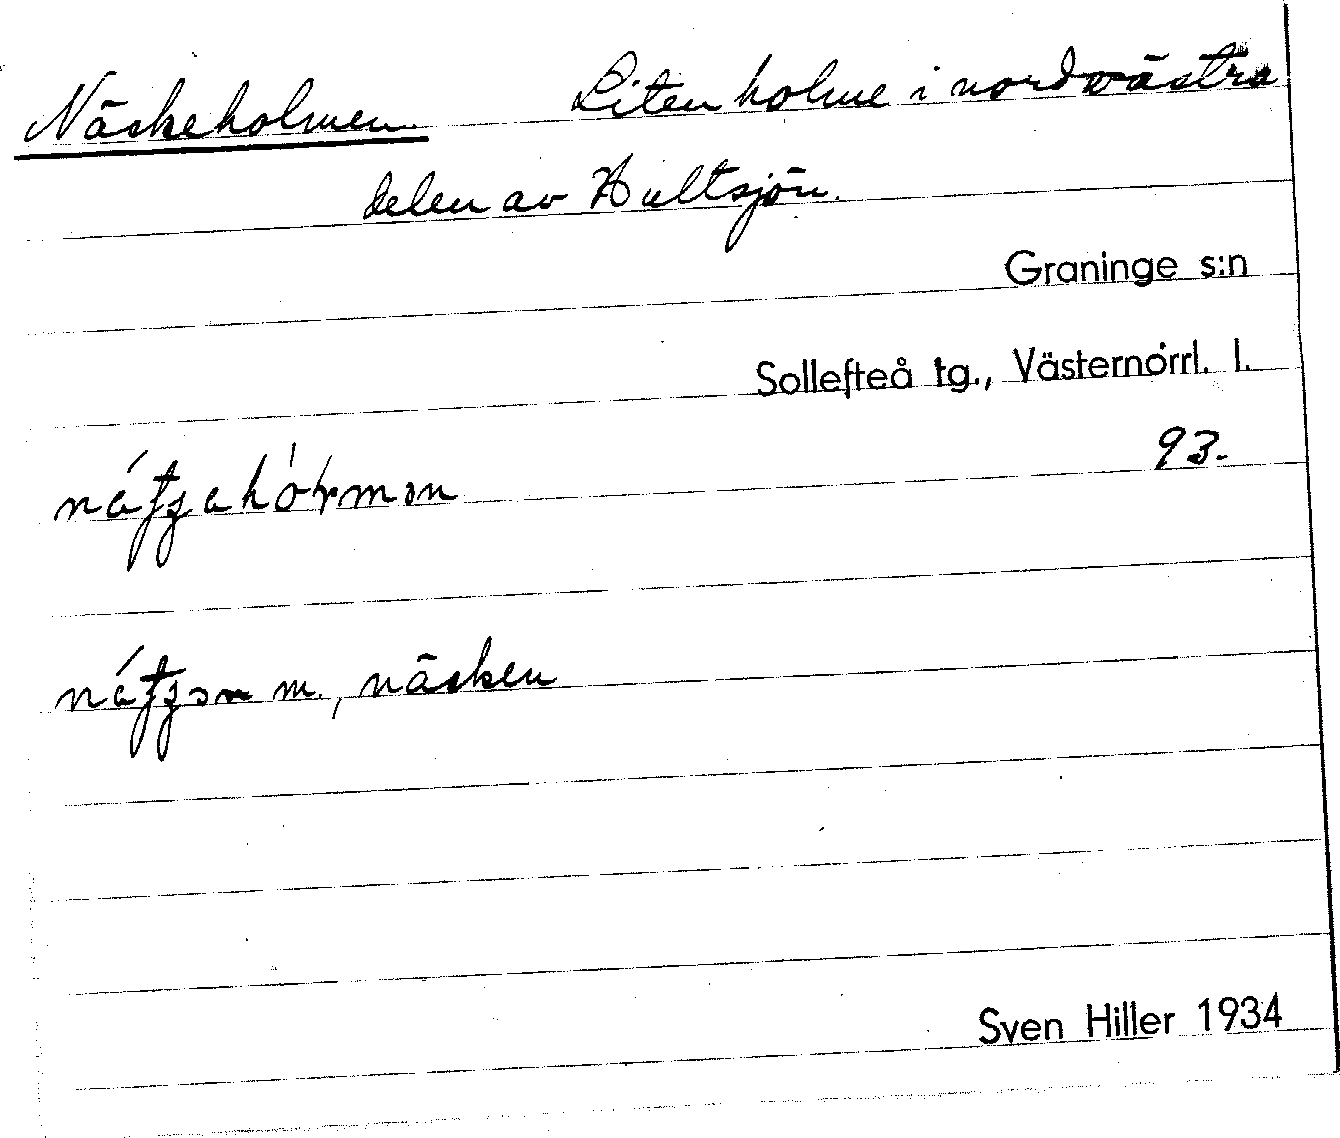 Näskeholmen. Liten holme i nordvästra
delen av Hultsjön.
Graninge s:n
Sollefteå tg., Västernorrl. l.
93.
m., näsken
Sven Hiller 1934